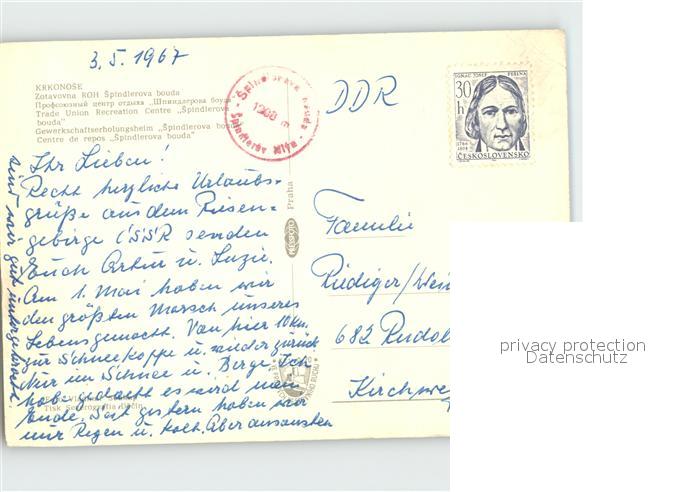 3. 5. 1967
KRKONOŠE
Zotavovna ROH Špindlerova bouda
Профсоюзный центр отдыха „Шпиндлерова боуда“
Trade Union Recreation Centre „Špindlerova
bouda“
Gewerkschaftserholungsheim „Špindlerova bouda“
Centre de repos „Špindlerova bouda“
Ihr Lieben!
Recht herzliche Urlaubs-
grüße aus dem Riesen-
gebirge ČSSR senden
Euch Artur u. Luzie.
Am 1. Mai haben wir
den größten Marsch unseres
Lebens gemacht. Von hier 10 km
zur Schneekoppe u. wieder zurück
Nur im Schnee u. Berge. Ich
habe gedacht es wird mein
Ende. Seit gestern haben wir
nur Regen u. kalt. Aber ansonsten
sind wir gut untergebracht.
Tisk Severografia
Praha
Špindlerova bouda
1208 m
Špindlerův Mlýn
DDR
IGNÁC JOSEF PEŠINA
30 h
1766
ČESKOSLOVENSKO
Familie
Rüdiger/
682 Rudol
Kirchwe
privacy protection
Datenschutz